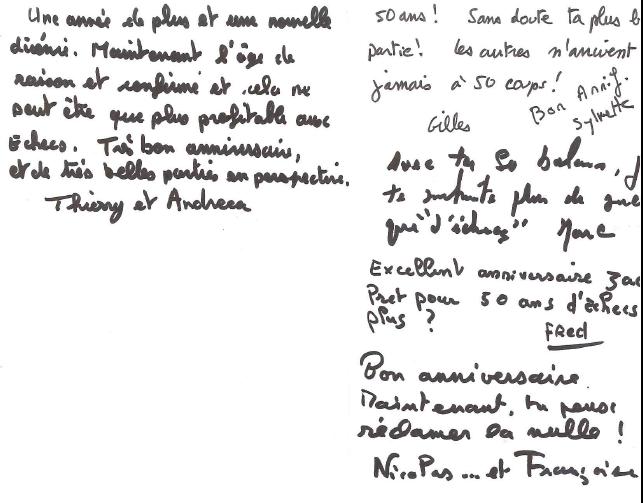 Une année de plus et une nouvelle
décénnie. Maintenant l'âge de
raison et confirmé et cela ne
peut être que plus profitable aux
Echecs. Très bon anniversaire,
et de très belles parties en perspective.
Thierry et Andreea
50 ans ! Sans doute ta plus b
partie ! Les autres n'arrivent
jamais à 50 coups !
Gilles
Bon Annif.
Sylvette
Avec tes 50 balais, j
te souhaite plus de
qu "d'échecs" Marc
Excellent anniversaire
Pret pour 50 ans d'Echecs
plus ?
FRED
Bon anniversaire
Maintenant, tu peux
réclamer la nulle !
Nicolas ... et Françoise